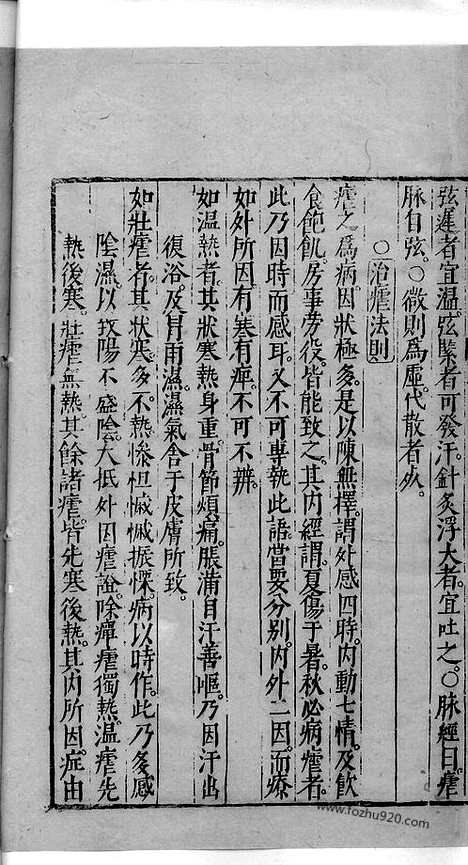 弦遲者宜溫。弦緊者可發汗。針灸浮大者。宜吐之。○脉經曰。瘧
脉自弦。○微則爲虛。代散者死。
○治瘧法則
瘧之爲病。因狀極多。是以陳無擇。謂外感四時。内動七情。及飲
食飽飢。房事勞役。皆能致之。其内經謂。夏傷于暑。秋必病瘧者。
此乃因時而感耳。又不可專執此語。當要分別。内外二因。而療
如外所因。有寒有痺。不可不辨。
如温熱者。其狀寒熱身重。骨節煩痛。脹滿自汗善嘔。乃因汗出
復浴。及冐雨濕。濕氣舍于皮膚所致。
如牡瘧者。其狀寒多。不熱慘慽慽振慄。病以時作。此乃多感
陰濕。以致陽不勝陰。大抵外因瘧證。除癉瘧獨熱。温瘧先
熱後寒。牡瘧無熱。其餘諸瘧。皆先寒後熱。其内所因症由
www.fozhu920.com